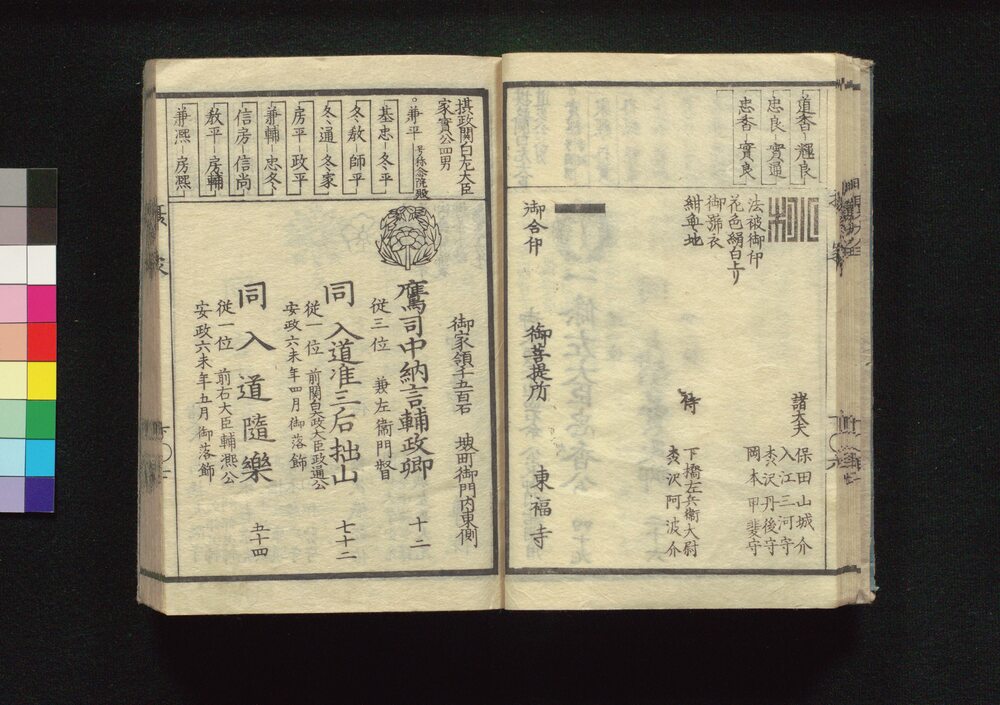 道香－輝良
忠良－實通
忠香－實良
法被御印
花色絹白上り
御鄣衣
紺無地
諸大夫
保田山城介
入江三河守
森沢丹後守
岡本甲斐守
侍
下橋左兵衛大尉
森沢阿波介
御合印
御菩提所
東福寺
摂政関白左大臣
家實公四男
兼平 号称念院殿
基忠－冬平
冬教－師平
冬通－冬家
房平－政平
兼輔－忠冬
信房－信尚
教平－房輔
兼凞－房凞
御家領千五百石 堺町御門内東側
鷹司中納言輔政卿 十二
従三位 兼左衞門督
同入道准三后拙山 七十二
従一位 前関白太政大臣政通公
安政六未年四月御落飾
同入道隨樂 五十四
従一位 前右大臣輔凞公
安政六未年五月御落飾